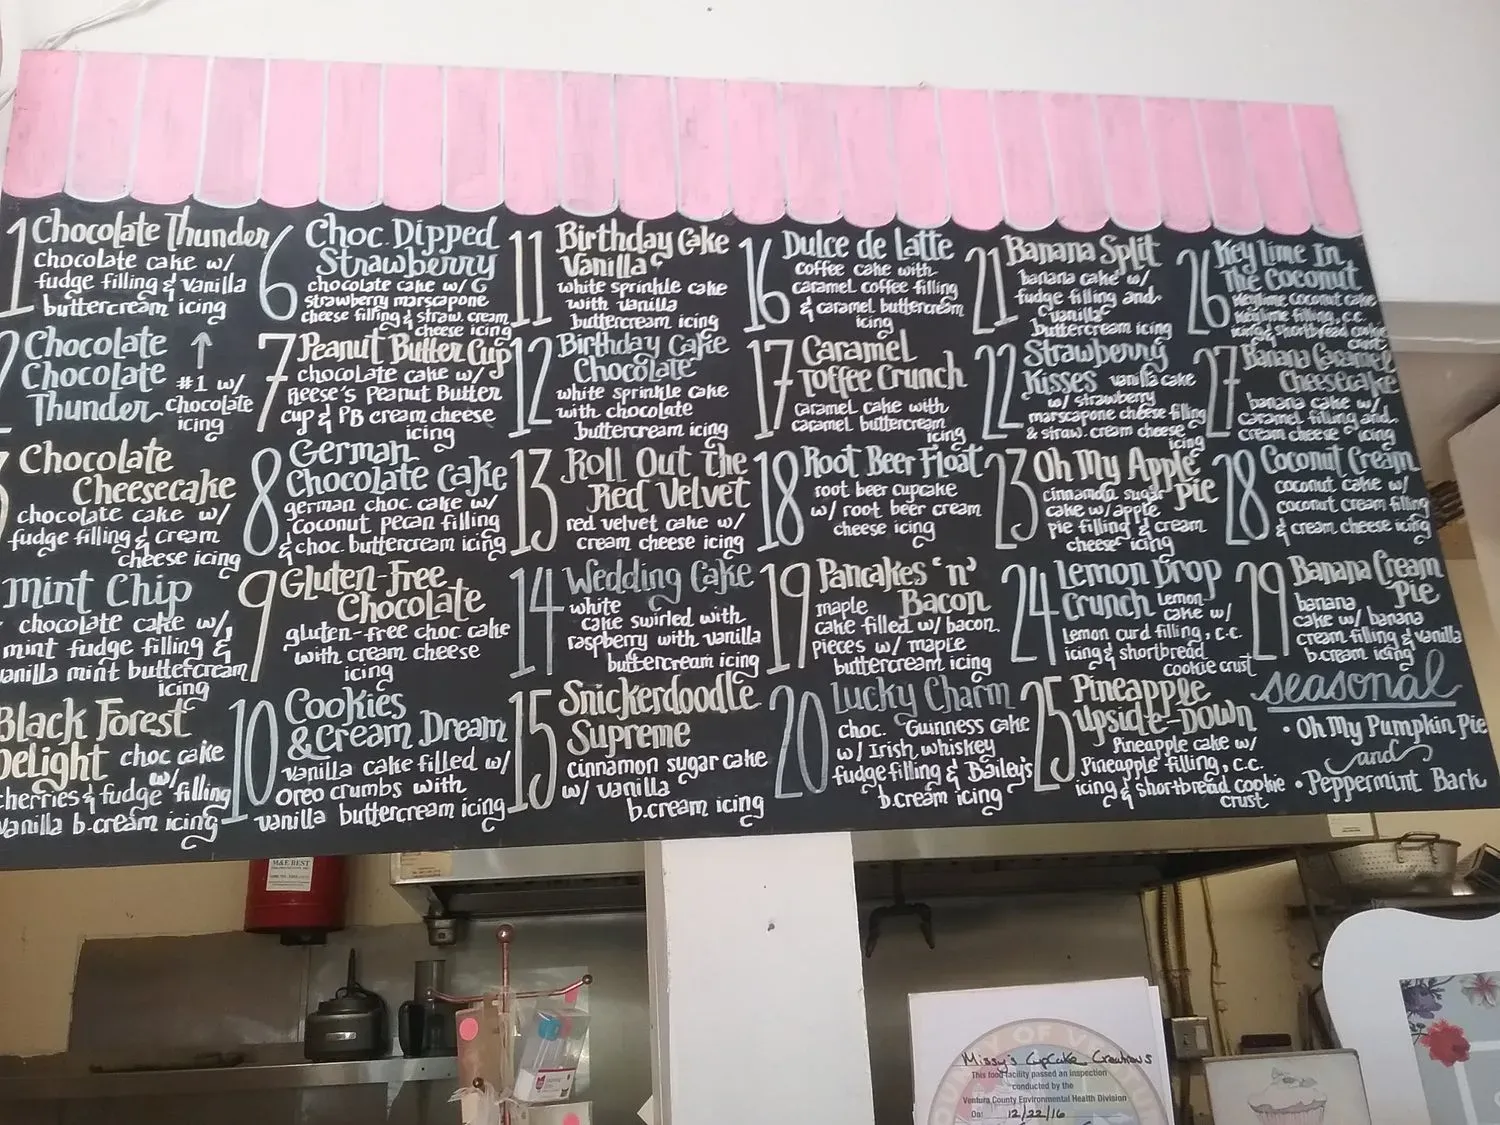 1 Chocolate Thunder
chocolate cake w/
fudge filling & vanilla
buttercream icing
Chocolate
Chocolate
Thunder
↑
#1 w/
chocolate
icing
Chocolate
Cheesecake
chocolate cake w/
fudge filling & cream
cheese icing
Mint Chip
chocolate cake w/
mint fudge filling &
vanilla mint buttercream
icing
Black Forest
Delight choc cake
w/
cherries & fudge filling
vanilla b.cream icing
6 Choc. Dipped
Strawberry
chocolate cake w/
strawberry marscapone
cheese filling & straw. cream
cheese icing
7 Peanut Butter Cup
chocolate cake w/
Reese's Peanut Butter
cup & PB cream cheese
icing
8 German
Chocolate Cake
german choc. cake w/
coconut pecan filling
& choc. buttercream icing
9 Gluten-Free
Chocolate
gluten-free choc cake
with cream cheese
icing
10 Cookies
& Cream Dream
vanilla cake filled w/
oreo crumbs with
vanilla buttercream icing
11 Birthday Cake
Vanilla
white sprinkle cake
with vanilla
buttercream icing
12 Birthday Cake
Chocolate
white sprinkle cake
with chocolate
buttercream icing
13 Roll Out the
Red Velvet
red velvet cake w/
cream cheese icing
14 Wedding Cake
white
cake swirled with
raspberry with vanilla
buttercream icing
15 Snickerdoodle
Supreme
cinnamon sugar cake
w/ vanilla
b.cream icing
16 Dulce de Latte
coffee cake with
caramel coffee filling
& caramel buttercream
icing
17 Caramel
Toffee Crunch
caramel cake with
caramel buttercream
icing
18 Root Beer Float
root beer cupcake
w/ root beer cream
cheese icing
19 Pancakes 'n'
maple Bacon
cake filled w/ bacon
pieces w/ maple
buttercream icing
20 Lucky Charm
choc. Guinness cake
w/ Irish whiskey
fudge filling & Bailey's
b.cream icing
21 Banana Split
banana cake w/
fudge filling and
vanilla
buttercream icing
22 Strawberry
Kisses vanilla cake
w/ strawberry
marscapone cheese filling
& straw. cream cheese
icing
23 Oh My Apple
Pie
cinnamon sugar
cake w/ apple
pie filling & cream
cheese icing
24 Lemon Drop
Crunch lemon
cake w/
lemon curd filling, c.c.
icing & shortbread
cookie crust
25 Pineapple
Upside-Down
Pineapple cake w/
Pineapple filling, c.c.
icing & shortbread cookie
crust
26 Key Lime In
The Coconut
Keylime coconut cake
Keylime filling, c.c.
icing & shortbread cookie
crust
27 Banana Caramel
Cheesecake
banana cake w/
caramel filling and
cream cheese icing
28 Coconut Cream
coconut cake w/
coconut cream filling
& cream cheese icing
29 Banana Cream
Pie
banana
cake w/ banana
cream filling & vanilla
b.cream icing
seasonal
• Oh My Pumpkin Pie
and
• Peppermint Bark
M&E BEST
Missy's CupCake Creations
This food facility passed an inspection
conducted by the
Ventura County Environmental Health Division
On: 12/22/16